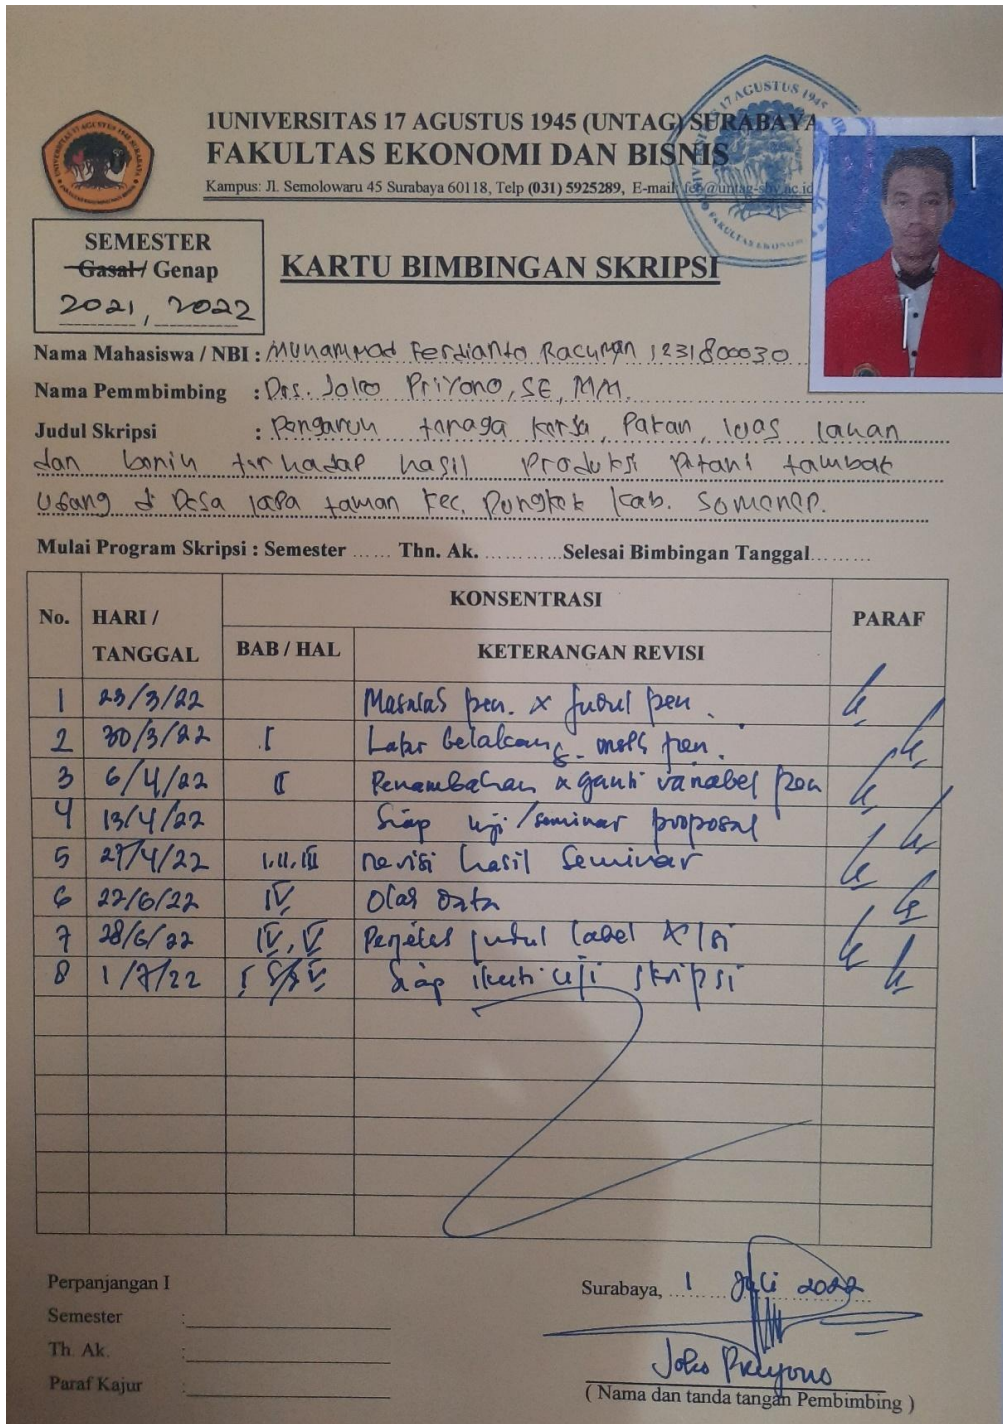 1UNIVERSITAS 17 AGUSTUS 1945 (UNTAG) SURABAYA
FAKULTAS EKONOMI DAN BISNIS
Kampus: Jl. Semolowaru 45 Surabaya 60118, Telp (031) 5925289, E-mail: feb@untag-sby.ac.id
SEMESTER
Gasal / Genap
2021, 2022
KARTU BIMBINGAN SKRIPSI
Nama Mahasiswa / NBI : Muhammad Ferdianto Racuman 1231800030
Nama Pemmbimbing : Drs. Joko Priyono, SE, MM.
Judul Skripsi : Pengaruh tenaga kerja, Pakan, luas lahan
dan benih terhadap hasil Produksi Petani tambak
Udang di Desa lapa taman Kec. Dungkek Kab. Sumenep.
Mulai Program Skripsi : Semester ...... Thn. Ak. ........... Selesai Bimbingan Tanggal .........
No. HARI / TANGGAL KONSENTRASI PARAF
BAB / HAL KETERANGAN REVISI
1 23/3/22 Masalah pen. & judul pen.
2 30/3/22 I Latar belakang pen.
3 6/4/22 II Penambahan & ganti variabel pen
4 13/4/22 Siap uji /seminar proposal
5 27/4/22 I, II, III revisi hasil seminar
6 22/6/22 IV Olah Data
7 28/6/22 IV, V Perjelas judul tabel & isi
8 1/7/22 I s/d V Siap ikuti uji skripsi
Perpanjangan I
Semester :
Th. Ak. :
Paraf Kajur :
Surabaya, 1 Juli 2022
Joko Priyono
( Nama dan tanda tangan Pembimbing )